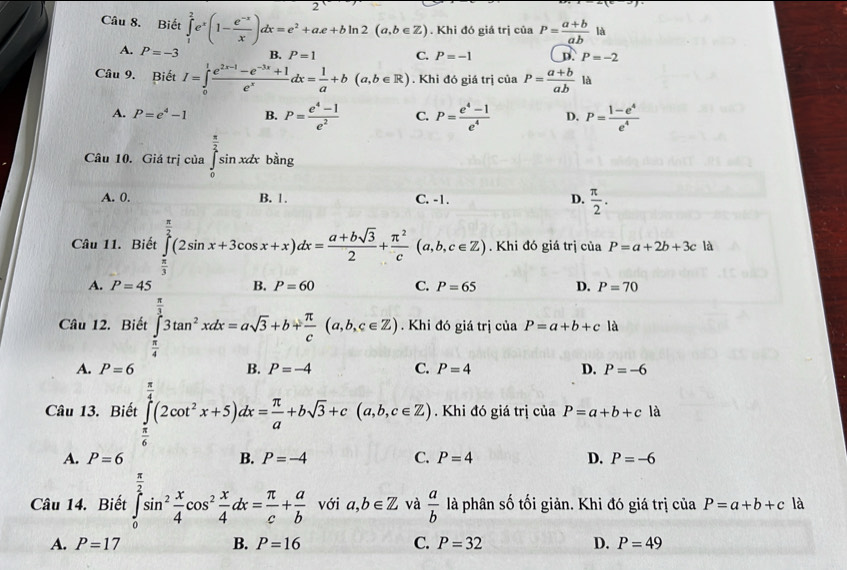 Câu 8. Biết \int_1^2 e^x (1 - \frac{e^{-x}}{x}) dx = e^2 + a.e + b ln 2 (a,b ∈ ℤ). Khi đó giá trị của P = \frac{a+b}{ab} là
A. P = -3 B. P = 1 C. P = -1 D. P = -2
Câu 9. Biết I = \int_0^1 \frac{e^{2x-1} - e^{-3x} + 1}{e^x} dx = \frac{1}{a} + b (a,b ∈ ℝ). Khi đó giá trị của P = \frac{a+b}{ab} là
A. P = e^4 - 1 B. P = \frac{e^4 - 1}{e^2} C. P = \frac{e^4 - 1}{e^4} D. P = \frac{1 - e^4}{e^4}
Câu 10. Giá trị của \int_0^{\frac{π}{2}} sin xdx bằng
A. 0. B. 1. C. -1. D. \frac{π}{2}.
Câu 11. Biết \int_{\frac{π}{3}}^{\frac{π}{2}} (2sin x + 3cos x + x) dx = \frac{a + b\sqrt{3}}{2} + \frac{π^2}{c} (a,b,c ∈ ℤ). Khi đó giá trị của P = a + 2b + 3c là
A. P = 45 B. P = 60 C. P = 65 D. P = 70
Câu 12. Biết \int_{\frac{π}{4}}^{\frac{π}{3}} 3tan^2 xdx = a\sqrt{3} + b + \frac{π}{c} (a,b,c ∈ ℤ). Khi đó giá trị của P = a + b + c là
A. P = 6 B. P = -4 C. P = 4 D. P = -6
Câu 13. Biết \int_{\frac{π}{6}}^{\frac{π}{4}} (2cot^2 x + 5) dx = \frac{π}{a} + b\sqrt{3} + c (a,b,c ∈ ℤ). Khi đó giá trị của P = a + b + c là
A. P = 6 B. P = -4 C. P = 4 D. P = -6
Câu 14. Biết \int_0^{\frac{π}{2}} sin^2 \frac{x}{4} cos^2 \frac{x}{4} dx = \frac{π}{c} + \frac{a}{b} với a,b ∈ ℤ và \frac{a}{b} là phân số tối giản. Khi đó giá trị của P = a + b + c là
A. P = 17 B. P = 16 C. P = 32 D. P = 49